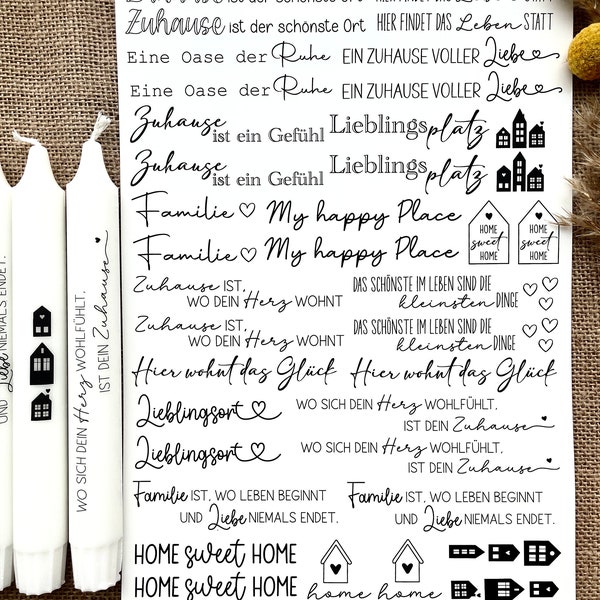 UND Liebe NIEMALS ENDET.
WO SICH DEIN Herz WOHLFÜHLT,
IST DEIN Zuhause
Zuhause ist der schönste Ort HIER FINDET DAS Leben STATT
Eine Oase der Ruhe EIN ZUHAUSE VOLLER Liebe
Eine Oase der Ruhe EIN ZUHAUSE VOLLER Liebe
Zuhause ist ein Gefühl Lieblingsplatz
Zuhause ist ein Gefühl Lieblingsplatz
Familie My happy Place
Familie My happy Place
HOME sweet HOME
HOME sweet HOME
Zuhause IST,
WO DEIN Herz WOHNT
DAS SCHÖNSTE IM LEBEN SIND DIE
kleinsten DINGE
Zuhause IST,
WO DEIN Herz WOHNT
DAS SCHÖNSTE IM LEBEN SIND DIE
kleinsten DINGE
Hier wohnt das Glück Hier wohnt das Glück
Lieblingsort
WO SICH DEIN Herz WOHLFÜHLT,
IST DEIN Zuhause
Lieblingsort
WO SICH DEIN Herz WOHLFÜHLT,
IST DEIN Zuhause
Familie IST, WO LEBEN BEGINNT
UND Liebe NIEMALS ENDET.
Familie IST, WO LEBEN BEGINNT
UND Liebe NIEMALS ENDET.
HOME sweet HOME
HOME sweet HOME
home home